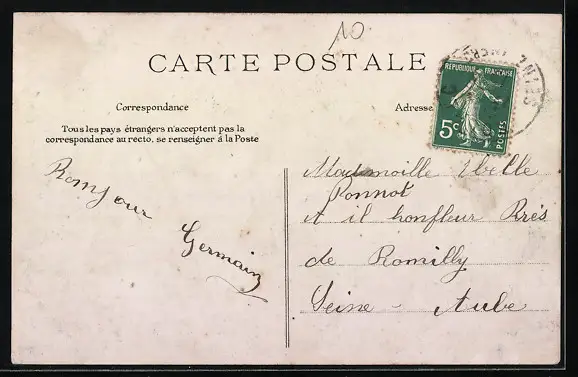 10
CARTE POSTALE
Correspondance
Adresse
RÉPUBLIQUE FRANÇAISE
5c
POSTES
Tous les pays étrangers n'acceptent pas la
correspondance au recto, se renseigner à la Poste
Romjour
Germain
Ponnot
A il honfleur Près
de Romilly
Seine - Aube